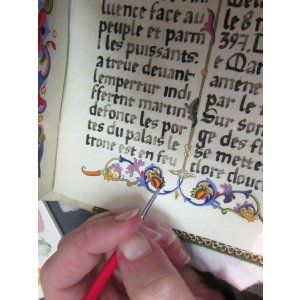 luence face au
peuple et parm
i les puissants.
a treve devant
l'empereur indi
fferent martin
defonce les por
tes du palais le
trone est en feu
le 8 n
397. L
e Mar
amene
par le
Sur son
ge des fl
se mette
clore douc